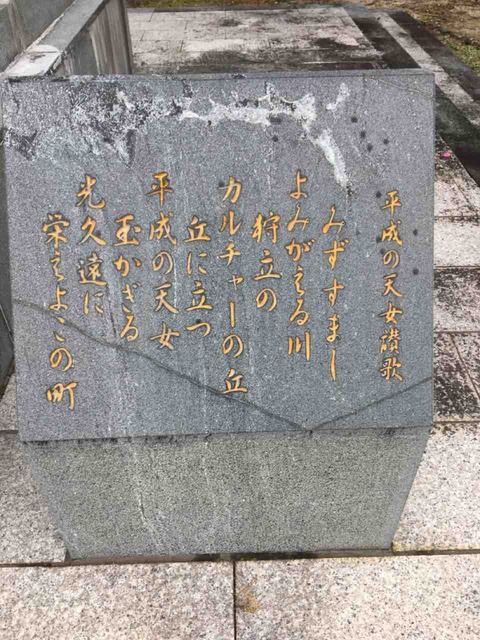 平成の天女讃歌
みずすまし
よみがえる川
狩立の
カルチャーの丘
丘に立つ
平成の天女
玉かぎる
光久遠に
栄えよこの町